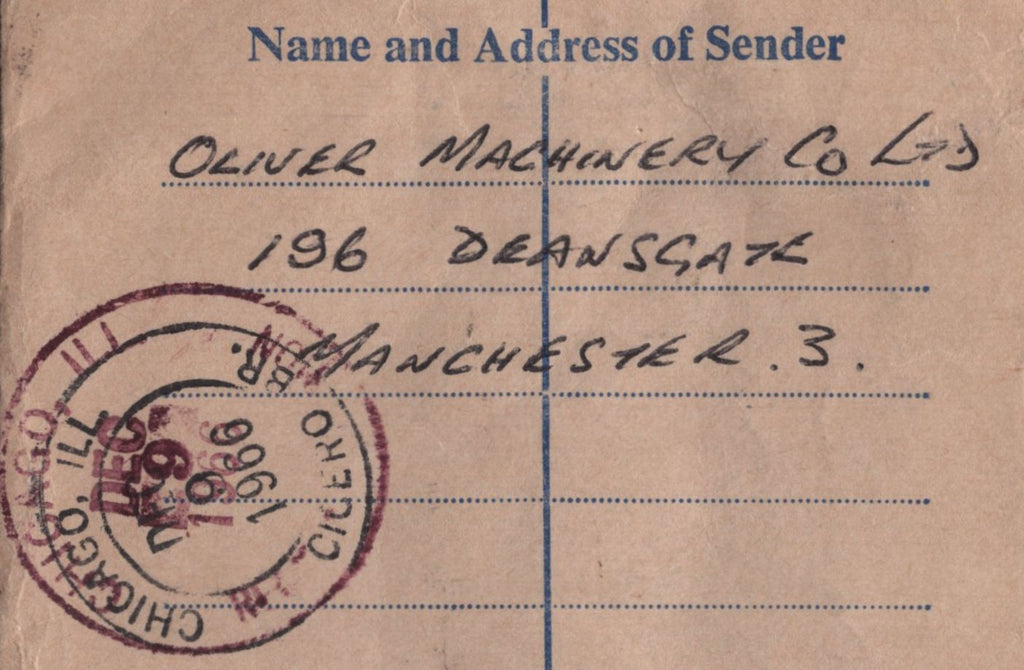 Name and Address of Sender
OLIVER MACHINERY CO LTD
196 DEANSGATE
MANCHESTER. 3.
CHICAGO, ILL
CICERO
BR.
9
1966
CHICAGO, ILL
DEC
9
1966